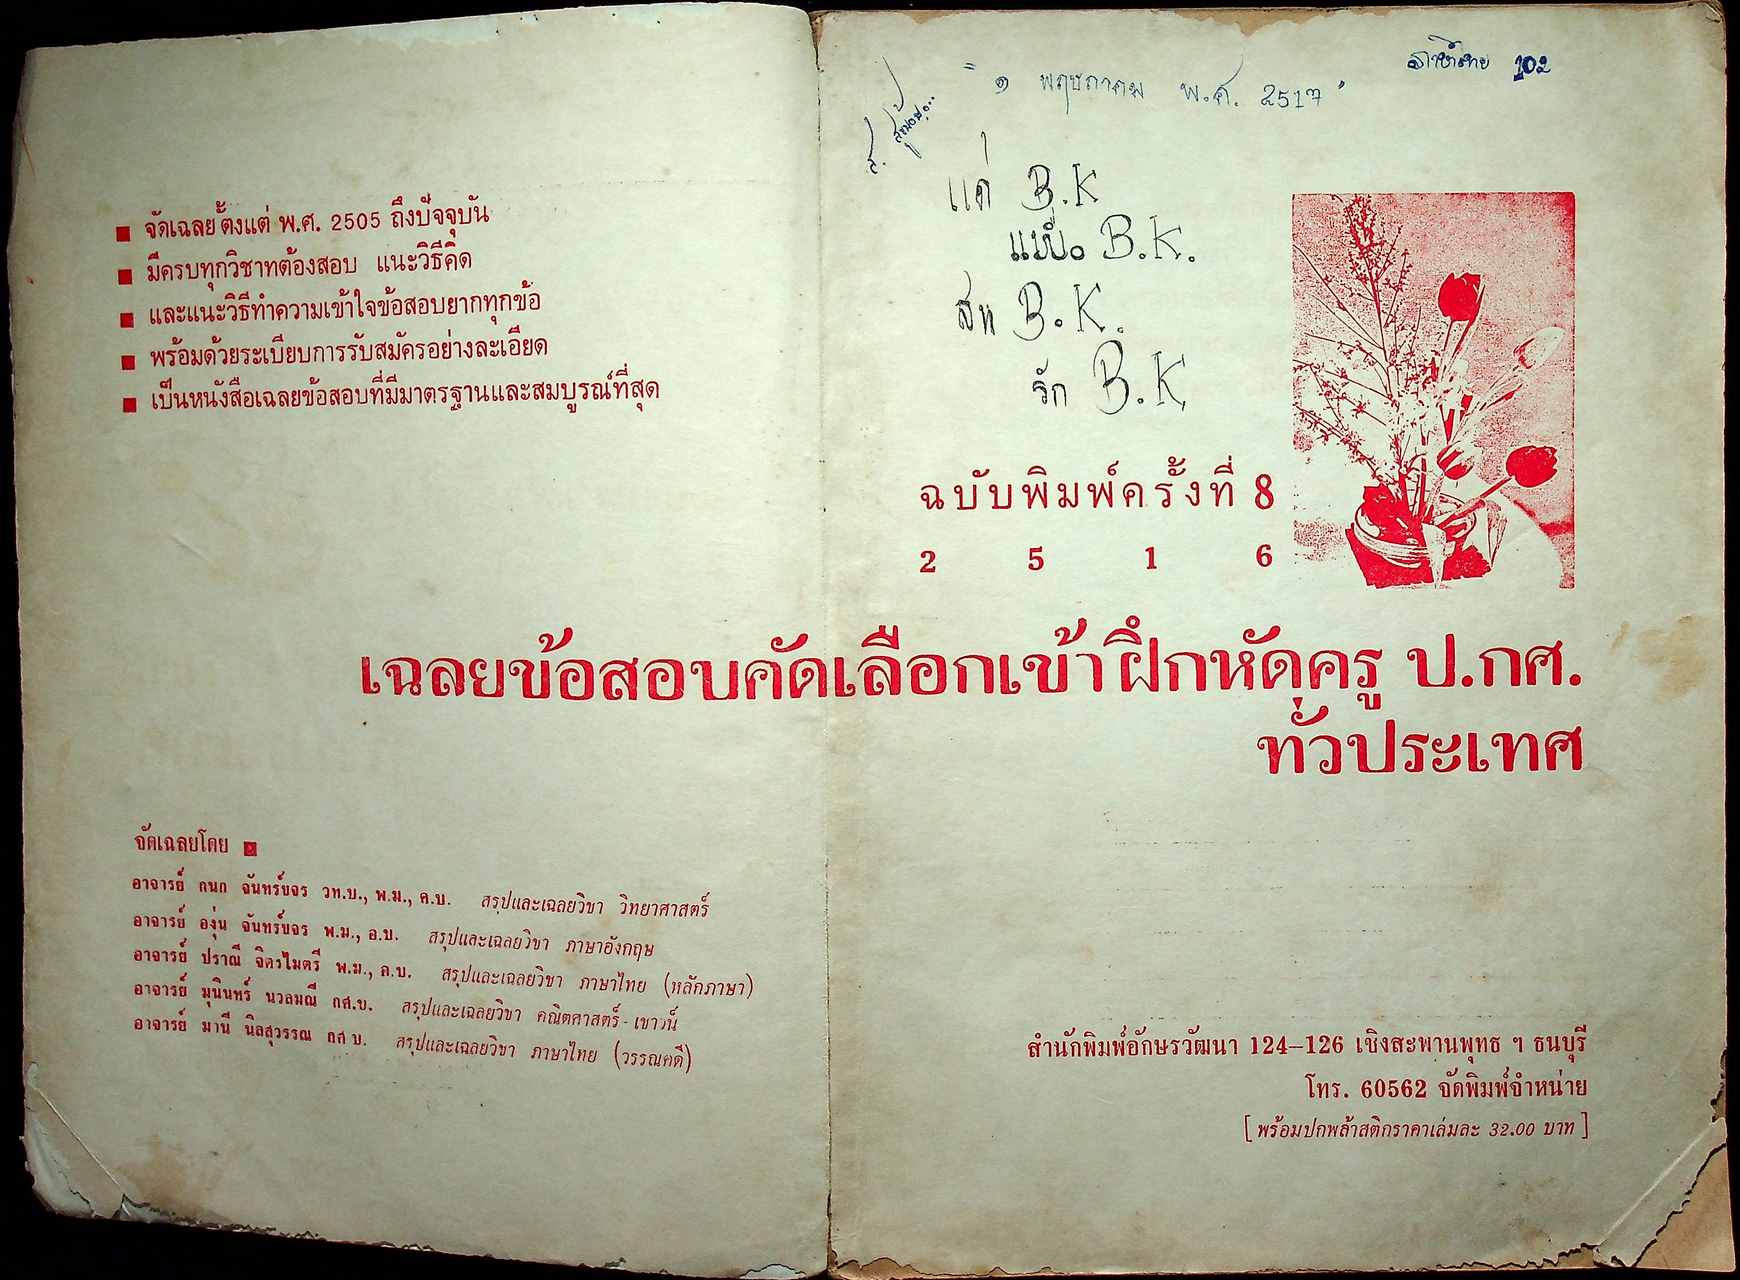 ■ จัดเฉลยตั้งแต่ พ.ศ. 2505 ถึงปัจจุบัน
■ มีครบทุกวิชาทต้องสอบ แนะวิธีคิด
■ และแนะวิธีทำความเข้าใจข้อสอบยากทุกข้อ
■ พร้อมด้วยระเบียบการรับสมัครอย่างละเอียด
■ เป็นหนังสือเฉลยข้อสอบที่มีมาตรฐานและสมบูรณ์ที่สุด
ภาษาไทย 102
" ๑ พฤษภาคม พ.ศ. 2517 "
แด่ B.K
B.K.
B.K.
รัก B.K
ฉบับพิมพ์ครั้งที่ 8
2 5 1 6
เฉลยข้อสอบคัดเลือกเข้าฝึกหัดครู ป.กศ.
ทั่วประเทศ
จัดเฉลยโดย ■
อาจารย์ กนก จันทร์ขจร วท.บ., พ.ม., ค.บ. สรุปและเฉลยวิชา วิทยาศาสตร์
อาจารย์ องุ่น จันทร์ขจร พ.ม., อ.บ. สรุปและเฉลยวิชา ภาษาอังกฤษ
อาจารย์ ปราณี จิตรไมตรี พ.ม., ค.บ. สรุปและเฉลยวิชา ภาษาไทย (หลักภาษา)
อาจารย์ มุนินทร์ นวลมณี กศ.บ. สรุปและเฉลยวิชา คณิตศาสตร์-เชาวน์
อาจารย์ มานี นิลสุวรรณ กศ บ. สรุปและเฉลยวิชา ภาษาไทย (วรรณคดี)
สำนักพิมพ์อักษรวัฒนา 124–126 เชิงสะพานพุทธ ฯ ธนบุรี
โทร. 60562 จัดพิมพ์จำหน่าย
[ พร้อมปกพล้าสติกราคาเล่มละ 32.00 บาท ]